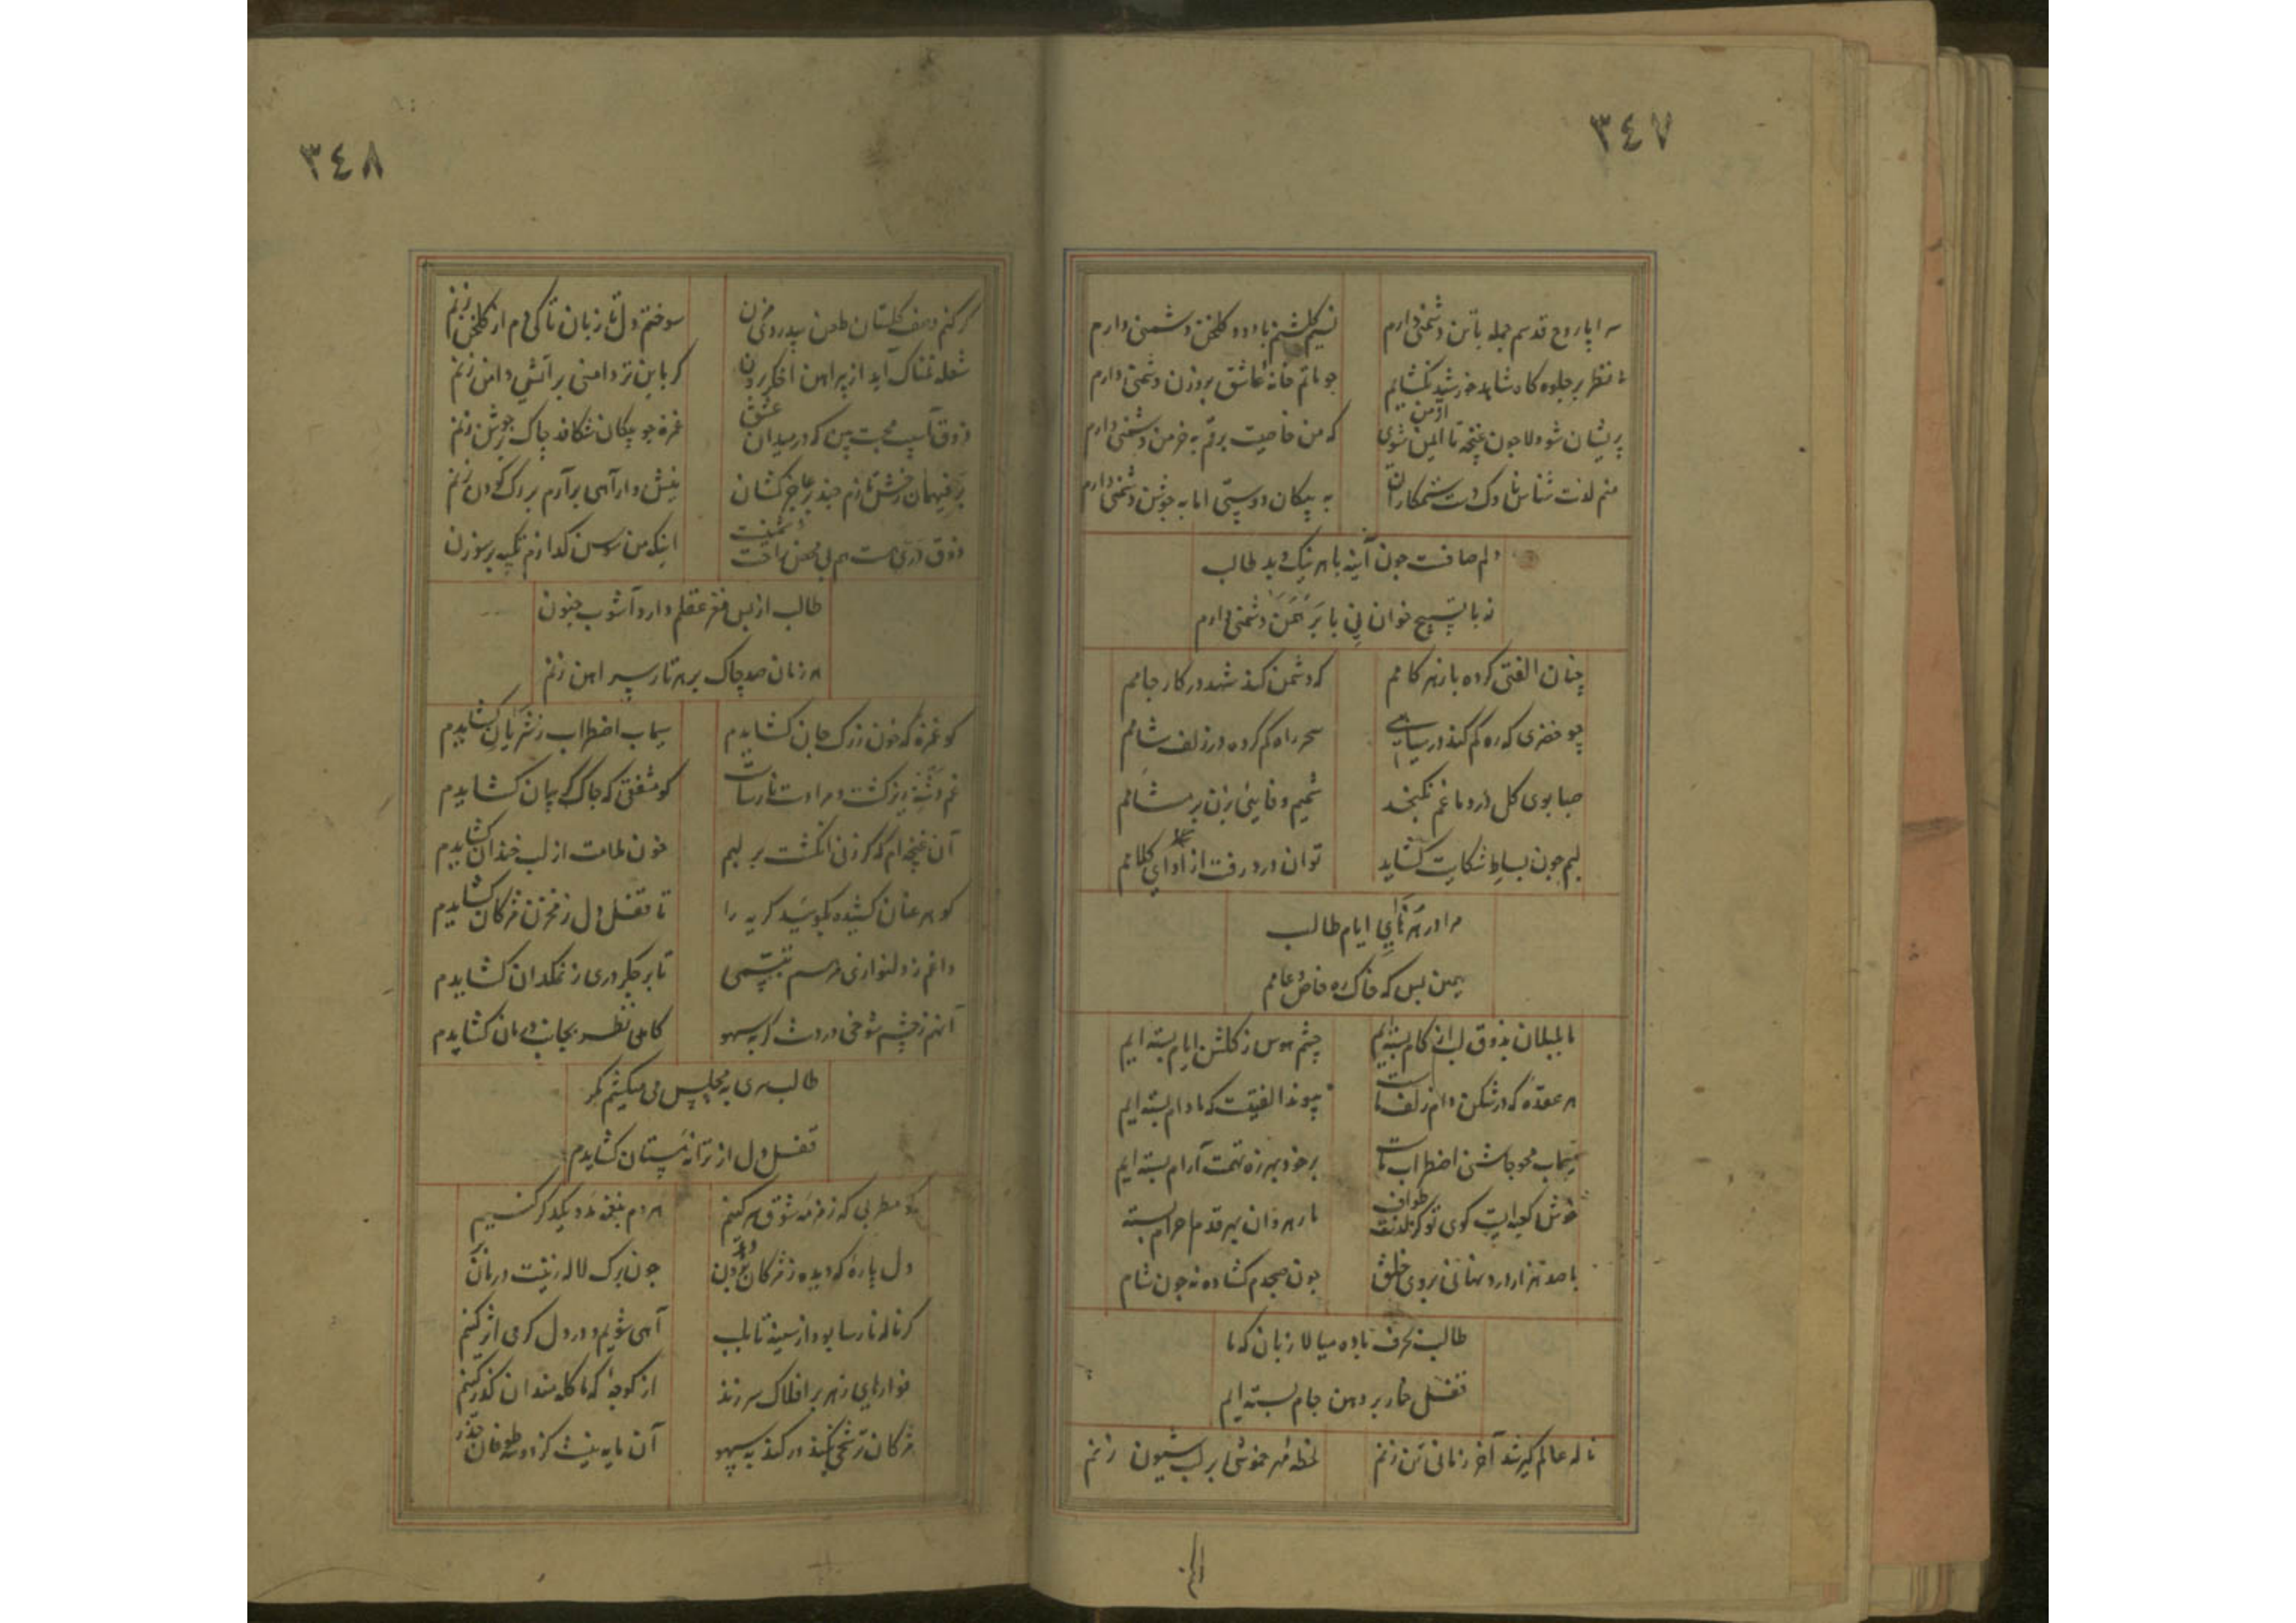 ٣٤٧
سراپا روح قدسم جمله با تن دشمنی دارم
نسیم گلشنم با دود گلخن دشمنی دارم
نظر بر جلوه گاه شاهد خورشید نگشایم
چو ماتم خانهٔ عاشق بروزن دشمنی دارم
پریشان شو دلا چون غنچه تا ایمن شوی از من
که من خاصیت برقم به خرمن دشمنی دارم
منم لذت شناس ناوک دست ستمکاران
به پیکان دوستی اما به جوشن دشمنی دارم
دلم صافست چون آینه با هر نیک و بد طالب
نه با تسبیح خوان نی با برهمن دشمنی دارم
چنان الفتی کرده با زهر کامم
که دشمن کند شهد در کار جامم
چو خضری که ره گم کند در سیاهی
سحر راه گم کرده در زلف شامم
صبا بوی گل در دماغم نگنجد
شمیم وفا بیی بزن بر مشامم
لبم چون بساط شکایت گشاید
توان درد رفت از ادای کلامم
مرا در ایام طالب
همین بس که خاک ره خاص و عامم
ما بلبلان بذوق لب از کام بسته‌ایم
چشم هوس ز گلشن ایام بسته ایم
هر عقده که در شکن دام زلف ماست
پیوند الفتیست که ما دام بسته ایم
سیماب محو چاشنی اضطراب ماست
بر خود بهرزه تهمت آرام بسته ایم
خوش کعبه ایست کوی تو کز طواف
ما رهروان بهر قدم احرام بسته
با صد هزار درد نهانی بروی خلق
چون صبحدم گشاده نه چون شام
طالب بحرف باده میالا زبان که ما
قفل خمار بر دهن جام بسته ایم
ناله عالم گیر شد آخر زمانی تن زنم
لحظه مهر خموشی بر لب شیون زنم
٣٤٨
گر کنم وصف گلستان طعن بیدردی مزن
سوختم دل تا زبان تا کی دم از گلخن زنم
شعله نمناک آید از پیراهن اخگر برون
گر باین تر دامنی بر آتشی دامن زنم
ذوق آسیب محبت بین که در میدان عشق
غمزه چو پیکان شکافد چاک بر جوشن زنم
رخش نازم چند بر عاجز کشان
نیش وار آهی برآرم بر رگ گردن زنم
ذوق
اینکه من سوسن گدازم تکیه بر سوزن
طالب از بس مغز عقلم دارد آشوب جنون
هر زمان صد چاک بر هر تار پیراهن زنم
کو غمزه که خون ز رگ جان گشایدم
سیماب اضطراب ز شریان گشایدم
غم دشنه تیز گشت و مرا دست نارساست
کو مشفقی که چاک گریبان گشایدم
آن غنچه ام که گر زنی انگشت بر لبم
خون ملامت از لب خندان گشایدم
کو هر عنان کشیده بگویید گریه را
تا قفل دل ز مخزن مژگان گشایدم
داغم ز دلنوازی مرهم تبسمی
تا بر جگر دری ز نمکدان گشایدم
آنهم ز چشم شوخی دردست اگر بسهو
گاهی نظر بجانب درمان گشایدم
طالب مرا به مجلس می میکشم مگر
قفل دل از ترانه مستان گشایدم
کو مطربی که زمزمه شوق سر کنیم
هر دم بنغمه مدد یکدگر کنیم
دل پاره که دیده ز مژگان برون
چون برگ لاله زینت درمان
گر ناله نارسا بود از سینه تا بلب
آهی شویم و در دل گرمی اثر کنیم
فواره‌های زهر بر افلاک سر زند
از کوچهٔ که ما گله مندان گذر کنیم
مژگان ترشحی نکند ور کند به سهو
آن مایه نیست کز طوفان حذر